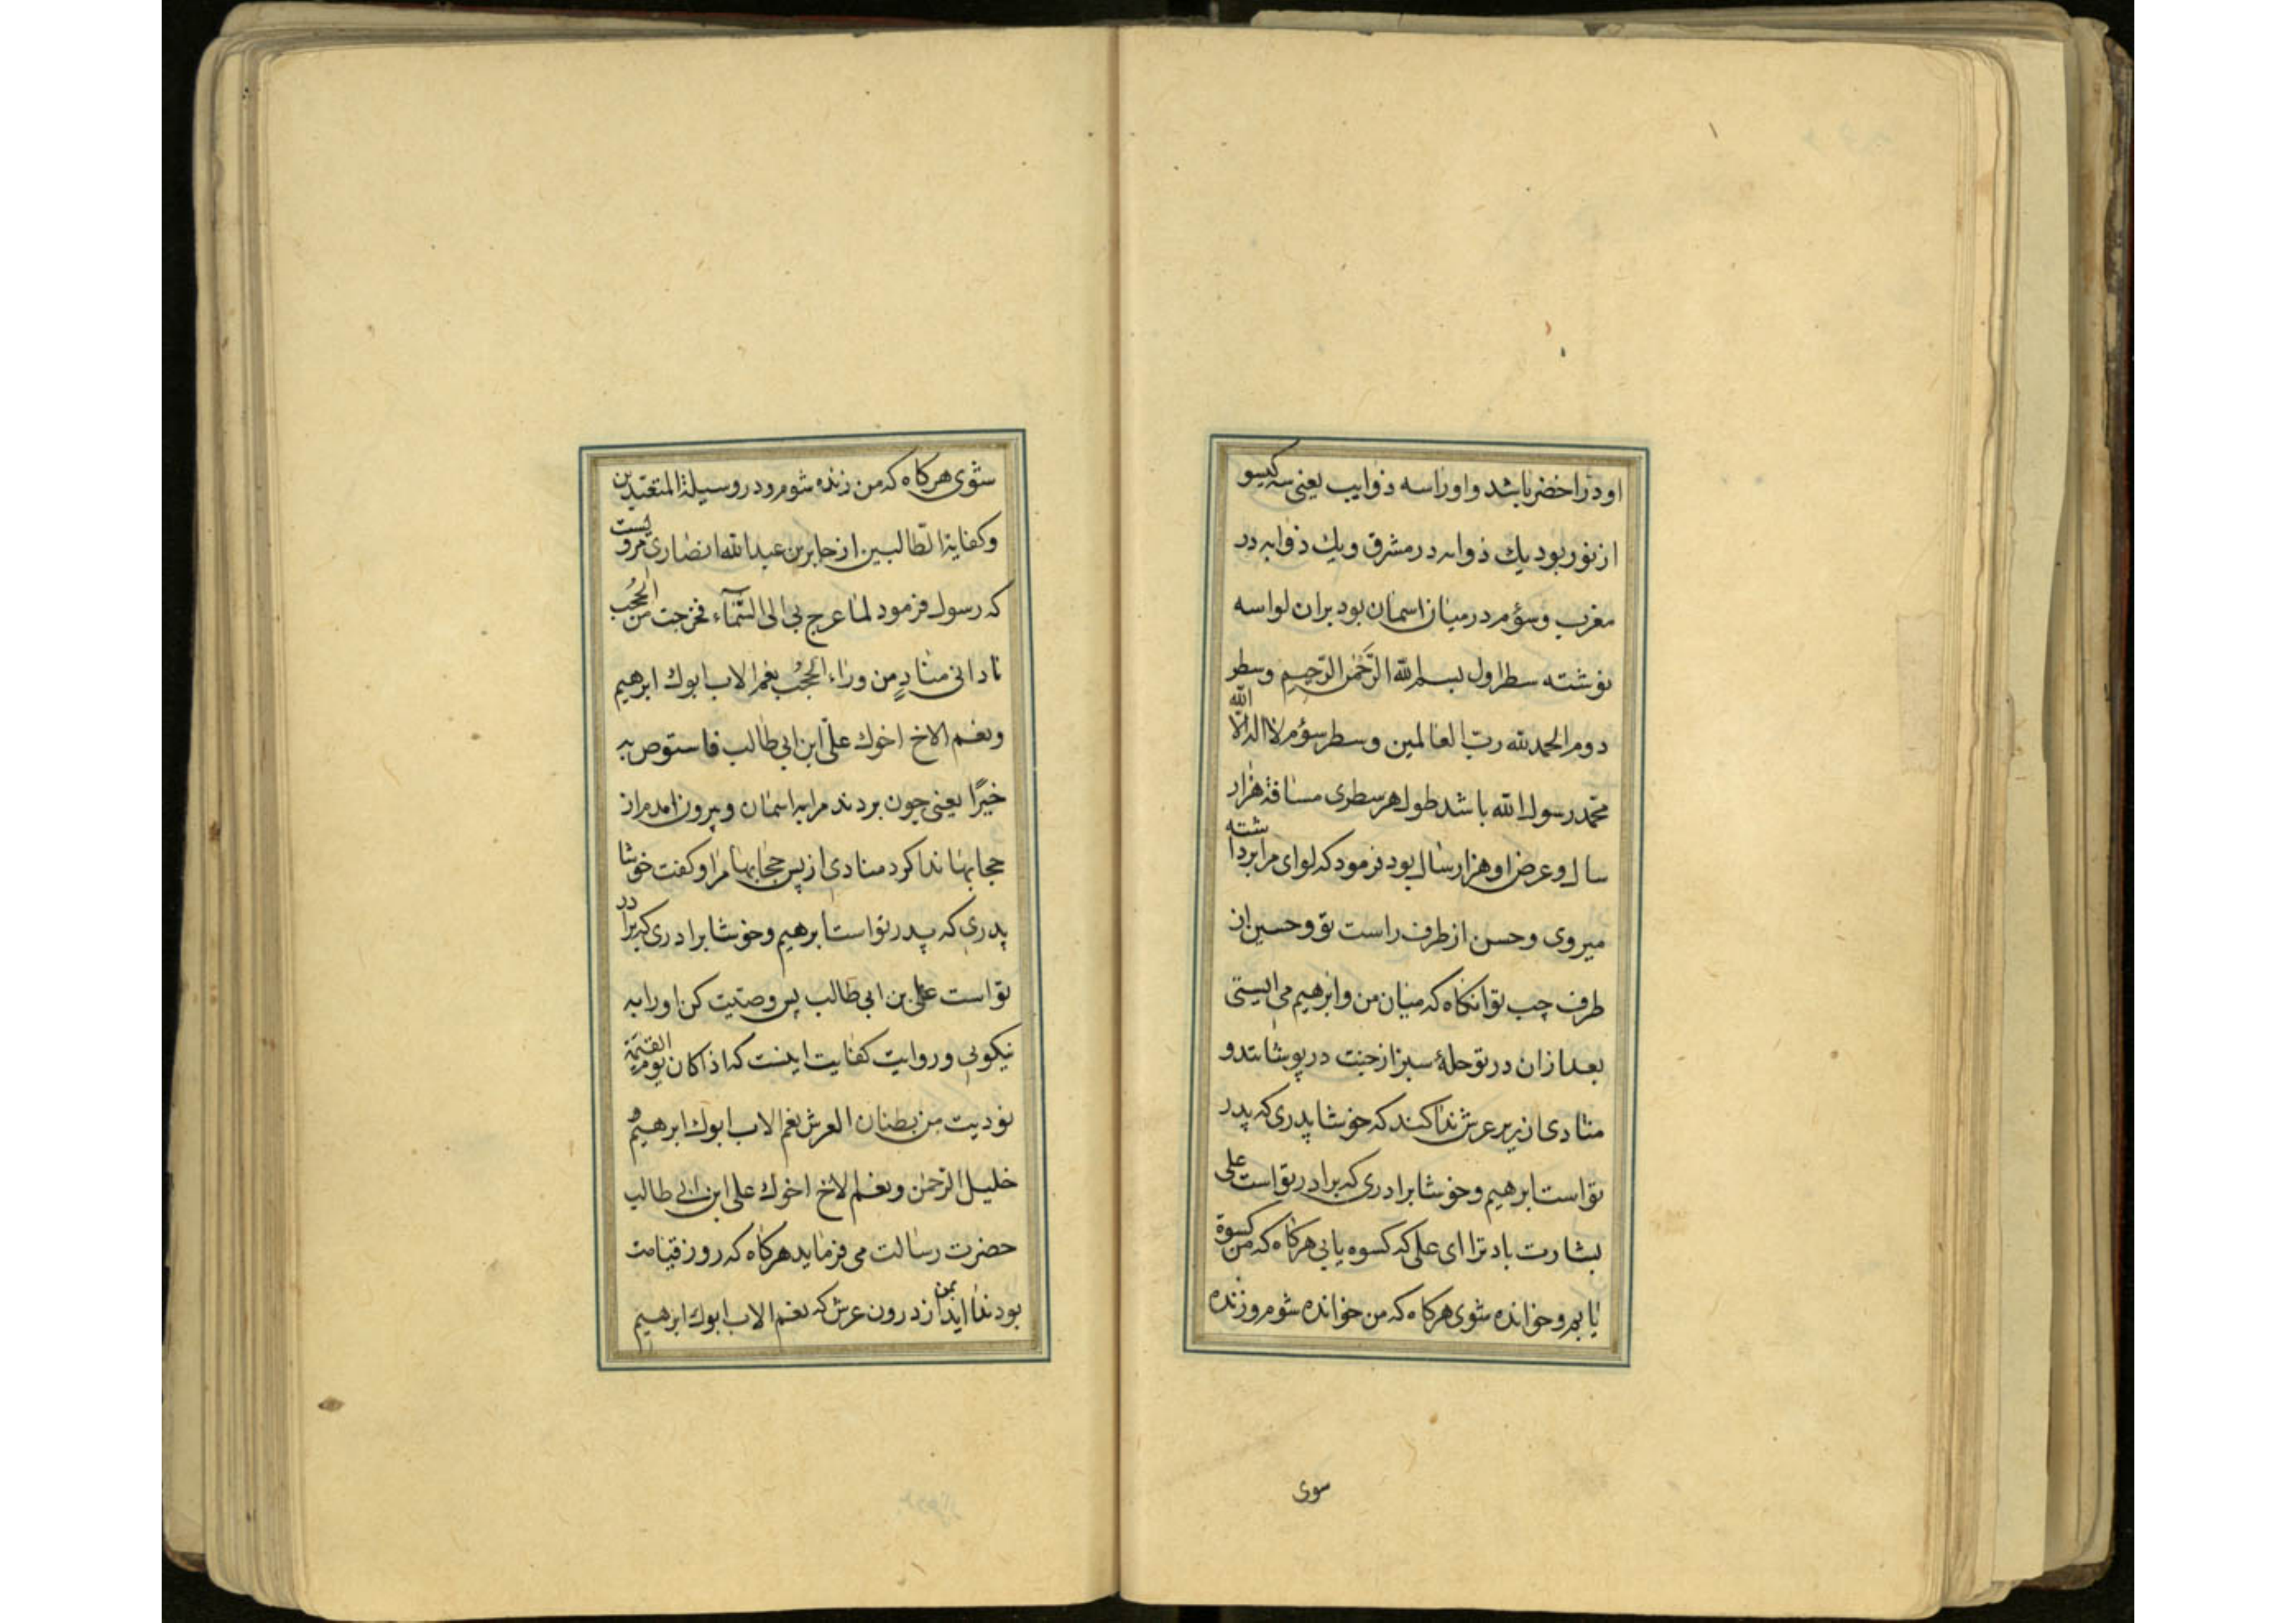 او درا خضر باشد و او را سه ذوایب یعنی سه کیسو
از نور بود یك ذوابه در مشرق و یك ذوابه در
مغرب و سؤم در میان اسمان بود بران لوا سه
نوشته سطر اول بسم الله الرّحمن الرّحیم و سطر
دوم الحمد لله ربّ العالمین و سطر سؤم لا اله الّا الله
محمّد رسول الله باشد طول هر سطری مسافة هزار
سال و عرض او هزار سال بود فرمود که لوای مرا برداشته
میروی و حسن از طرف راست تو و حسین از
طرف چپ تو انکاه که میان من و ابرهیم می ایستی
بعد ازان در تو حلۀ سبز از جنت در پوشانند و
منادی از زیر عرش ندا کند که خوشا پدری که پدر
تو است ابرهیم و خوشا برادری که برادر تو است علی
بشارت باد ترا ای علی که کسوه یابی هرکاه که من کسوة
یابم و خوانده شوی هرکاه که من خوانده شوم و زنده
سوی
شوی هرکاه که من زنده شوم و در وسیلة المتعبّدین
و کفایة الطّالبین از جابر بن عبد الله انصاری مرویست
که رسول فرمود لما عرج بی الی السّمآء فخرجت من الحجُب
نادانی منادٍ من وراء الحجُب نعم الاب ابوك ابرهیم
و نعم الاخ اخوك علیّ ابن ابی طالب فاستوص به
خیرًا یعنی چون بردند مرا به اسمان و بیرون امدم از
حجابها ندا کرد منادی از پس حجابها مرا و کفت خوشا
پدری که پدر تو است ابرهیم و خوشا برادری که برادر
تو است علی بن ابی طالب پس وصیّت کن او را به
نیکویی و روایت کفایت اینست که اذا کان یوم القیمة
نودیت من بطنان العرش نعم الاب ابوك ابرهیم
خلیل الرّحمن و نعم الاخ اخوك علی ابن ابی طالب
حضرت رسالت می فرماید هرکاه که روز قیامت
بود ندا اید بمن از درون عرش که نعم الاب ابوك ابرهیم